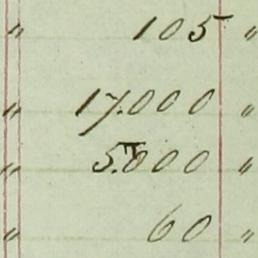 " 105 "
" 17.000 "
" 5.000 "
" 60 "